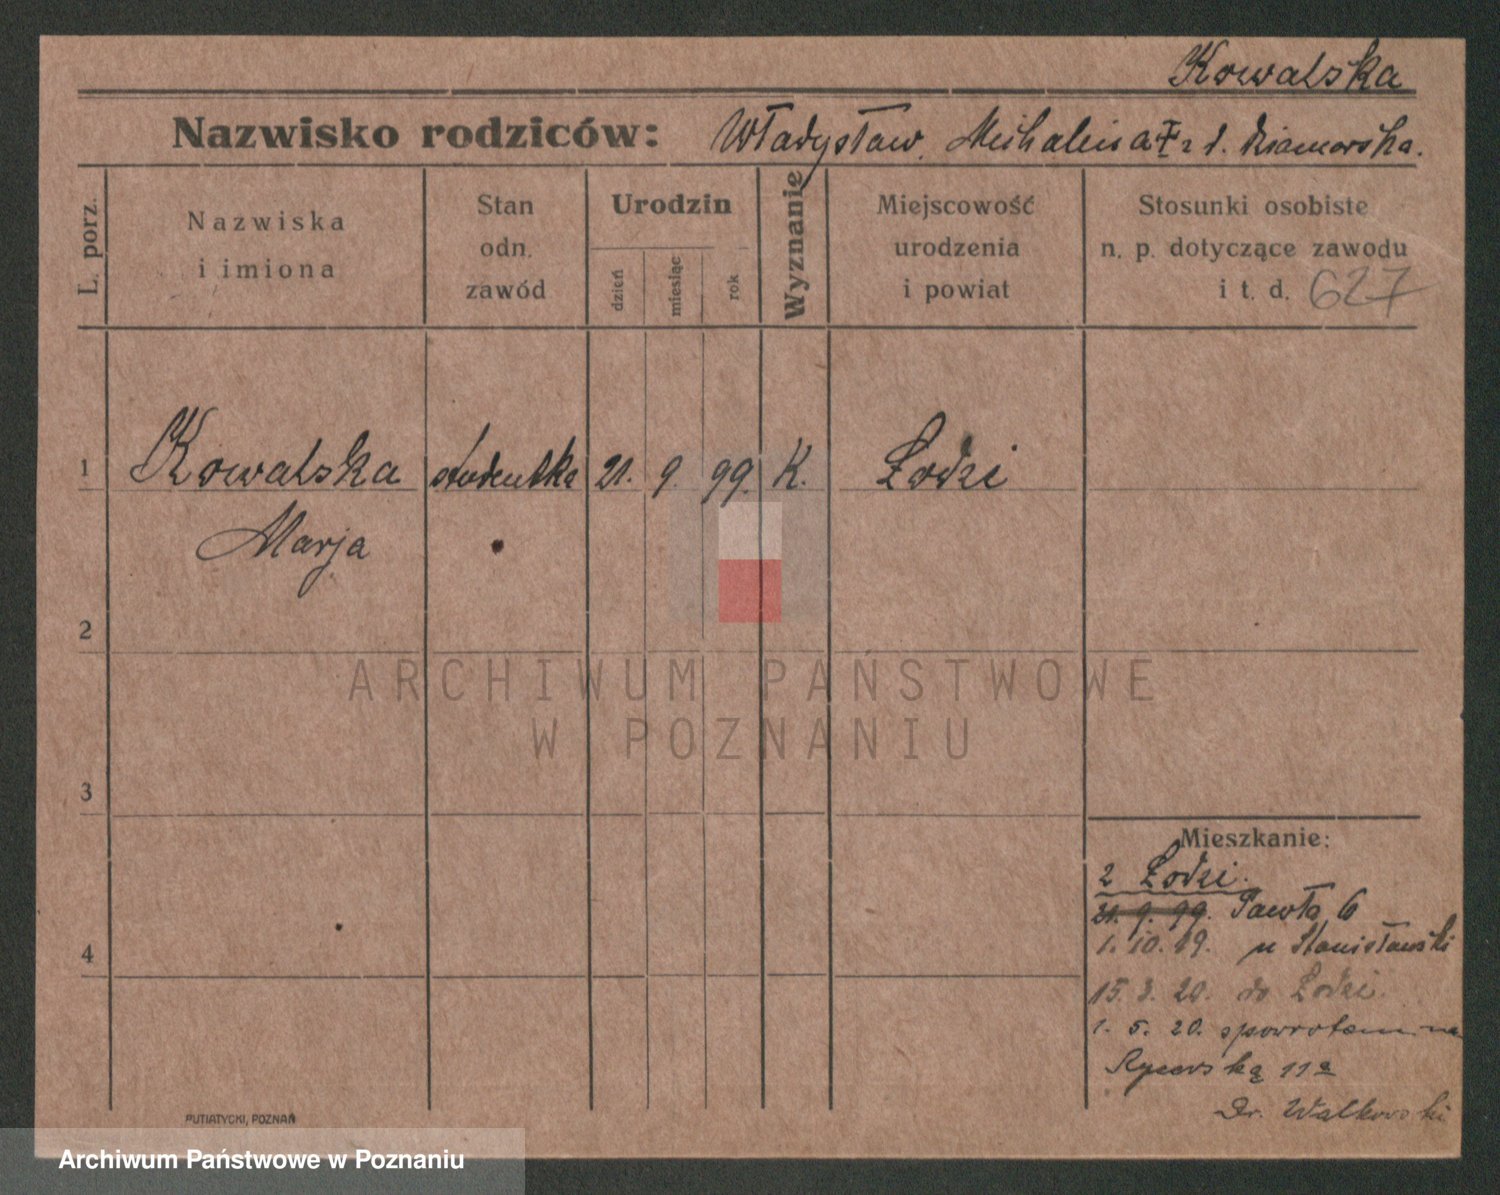 Kowalska
Nazwisko rodziców: Władysław, Michalina z d.
L. porz.
Nazwiska
i imiona
Stan
odn.
zawód
Urodzin
dzień
miesiąc
rok
Wyznanie
Miejscowość
urodzenia
i powiat
Stosunki osobiste
n. p. dotyczące zawodu
i t. d. 627
1 Kowalska studentka 21. 9. 99. K. Łodzi
Marja
2
3
4
Mieszkanie:
z Łodzi.
21. 9. 99. Pawła 6
1. 10. 19. u Stanisławski
15. 3. 20. do Łodzi.
1. 5. 20. spowrotem na
Rycerską 11a
Dr. Walkowski
PUTIATYCKI, POZNAŃ
ARCHIWUM PAŃSTWOWE
W POZNANIU
Archiwum Państwowe w Poznaniu